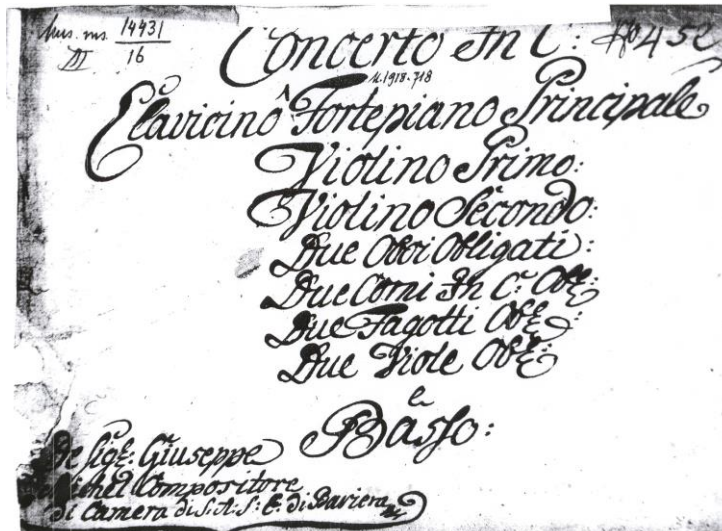 Mus. ms. 14431
III 16
Concerto In C: No 452
M. 1918.718
Clavicino ô Fortepiano Principale
Violino Primo:
Violino Secondo:
Due Oboi Obligati:
Due Corni In C: Obl:
Due Fagotti Obl:
Due Viole Obl:
e
Basso:
De Sigr: Giuseppe
Michel Compositore
di Camera di S: A: S: E: di Baviera